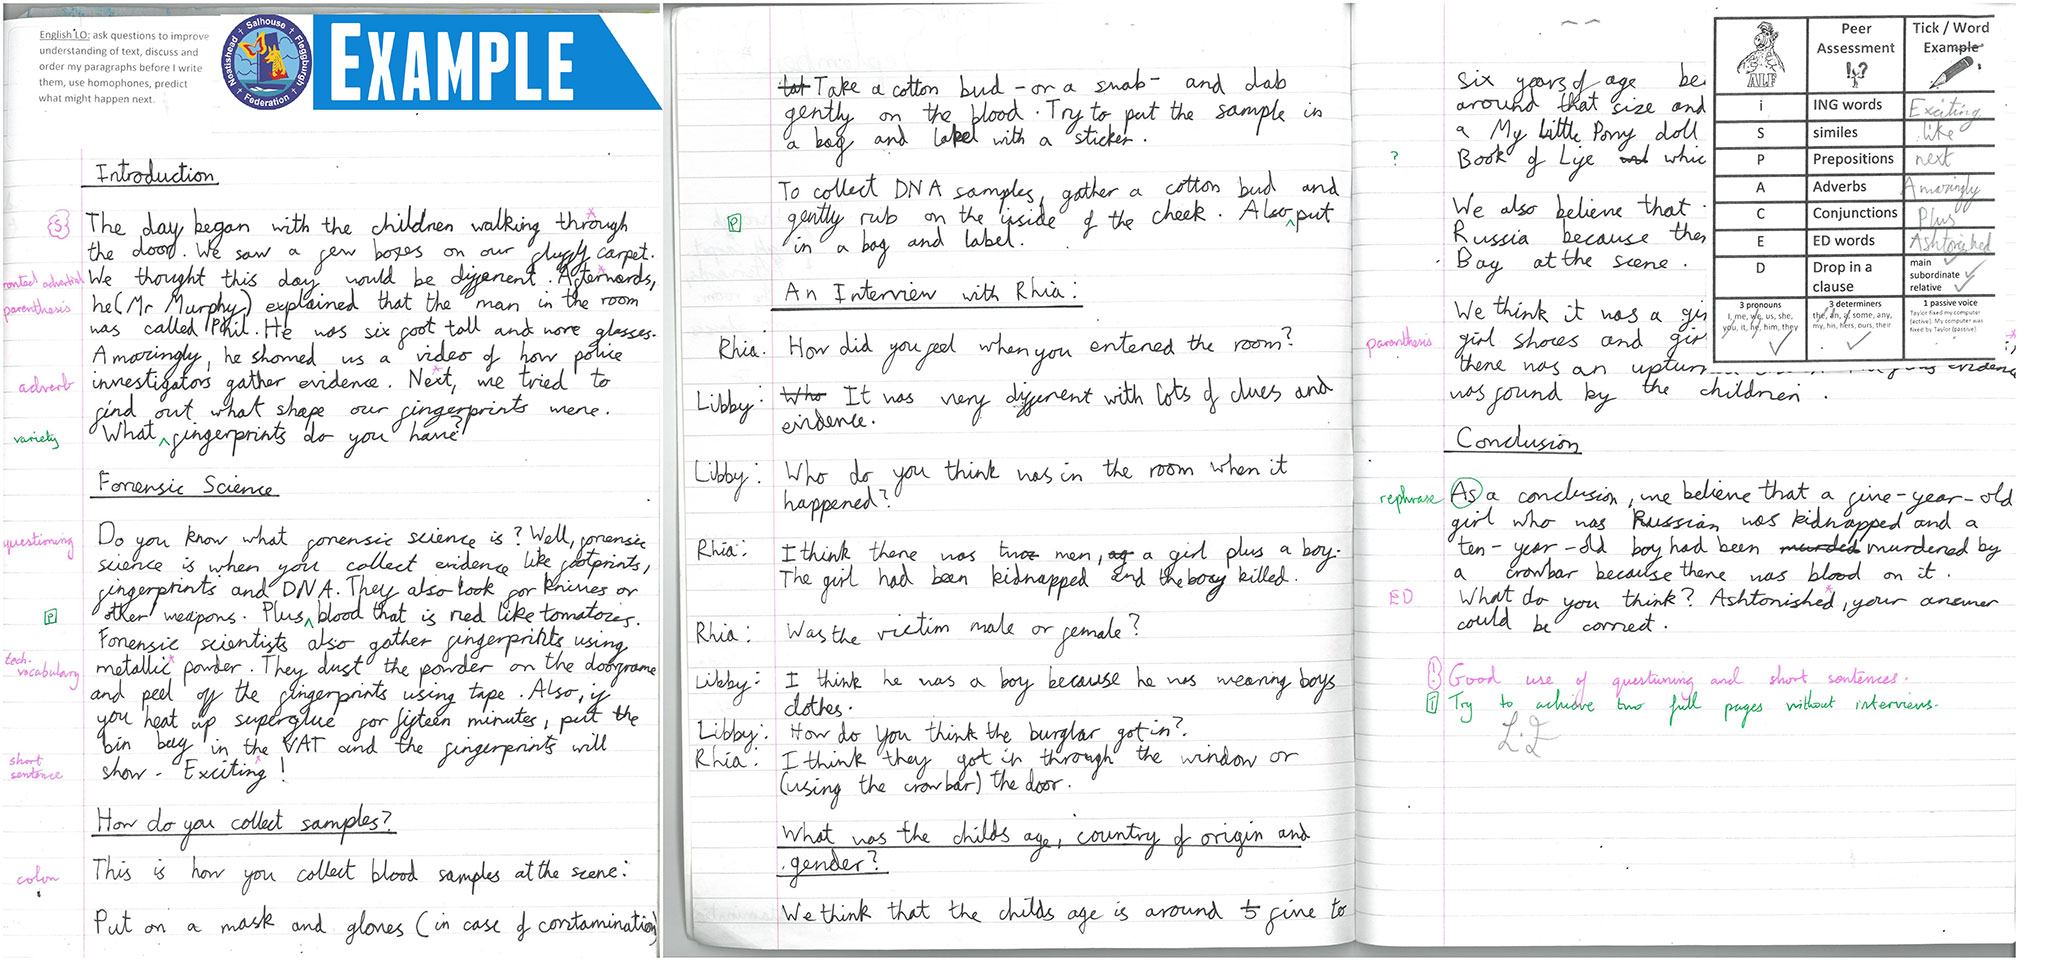 English LO: ask questions to improve
understanding of text, discuss and
order my paragraphs before I write
them, use homophones, predict
what might happen next.
Salhouse
Neatishead
Fleggburgh
Federation
EXAMPLE
Introduction
{S} The day began with the children walking through
the door. We saw a few boxes on our fluffy carpet.
fronted adverbial We thought this day would be different. Afterwards,
parenthesis he (Mr Murphy) explained that the man in the room
was called Phil. He was six foot tall and wore glasses.
Amazingly, he showed us a video of how police
adverb investigators gather evidence. Next, we tried to
find out what shape our fingerprints were.
variety What ^ fingerprints do you have?
Forensic Science
questioning Do you know what forensic science is? Well, forensic
science is when you collect evidence like footprints,
fingerprints and DNA. They also look for knives or
P other weapons. Plus ^ blood that is red like tomatoes.
Forensic scientists also gather fingerprints using
tech. vocabulary metallic powder. They dust the powder on the doorframe
and peel off the fingerprints using tape. Also, if
you heat up superglue for fifteen minutes, put the
bin bag in the VAT and the fingerprints will
short sentence show - Exciting!
How do you collect samples?
colon This is how you collect blood samples at the scene:
Put on a mask and gloves (in case of contamination)
Take a cotton bud - or a swab - and dab
gently on the blood. Try to put the sample in
a bag and label with a sticker.
To collect DNA samples, gather a cotton bud and
P gently rub on the inside of the cheek. Also ^ put
in a bag and label.
An Interview with Rhia:
Rhia: How did you feel when you entered the room?
Libby: Who It was very different with lots of clues and
evidence.
Libby: Who do you think was in the room when it
happened?
Rhia: I think there was two men, a girl plus a boy.
The girl had been kidnapped and the boy killed.
Rhia: Was the victim male or female?
Libby: I think he was a boy because he was wearing boys
clothes.
Libby: How do you think the burglar got in?
Rhia: I think they got in through the window or
(using the crowbar) the door.
What was the childs age, country of origin and
gender?
We think that the childs age is around 5 five to
six years of age be
around that size and
a My Little Pony doll
? Book of Life and whic
We also believe that
Russia because ther
Bay at the scene.
We think it was a gir
parenthesis girl shoes and gir
there was an upturn evidence
was found by the children.
Conclusion
rephrase As a conclusion, we believe that a five-year-old
girl who was Russian was kidnapped and a
ten-year-old boy had been murded murdered by
a crowbar because there was blood on it.
ED What do you think? Ashtonished, your answer
could be correct.
! Good use of questioning and short sentences.
T Try to achieve two full pages without interviews.
ALF
Peer Assessment
Tick / Word Example
i ING words Exciting
S similes like
P Prepositions next
A Adverbs Amazingly
C Conjunctions Plus
E ED words Ashtonished
D Drop in a clause
main
subordinate
relative
3 pronouns
I, me, we, us, she,
you, it, he, him, they
3 determiners
the, an, a, some, any,
my, his, hers, ours, their
1 passive voice
Taylor fixed my computer
(active). My computer was
fixed by Taylor (passive)